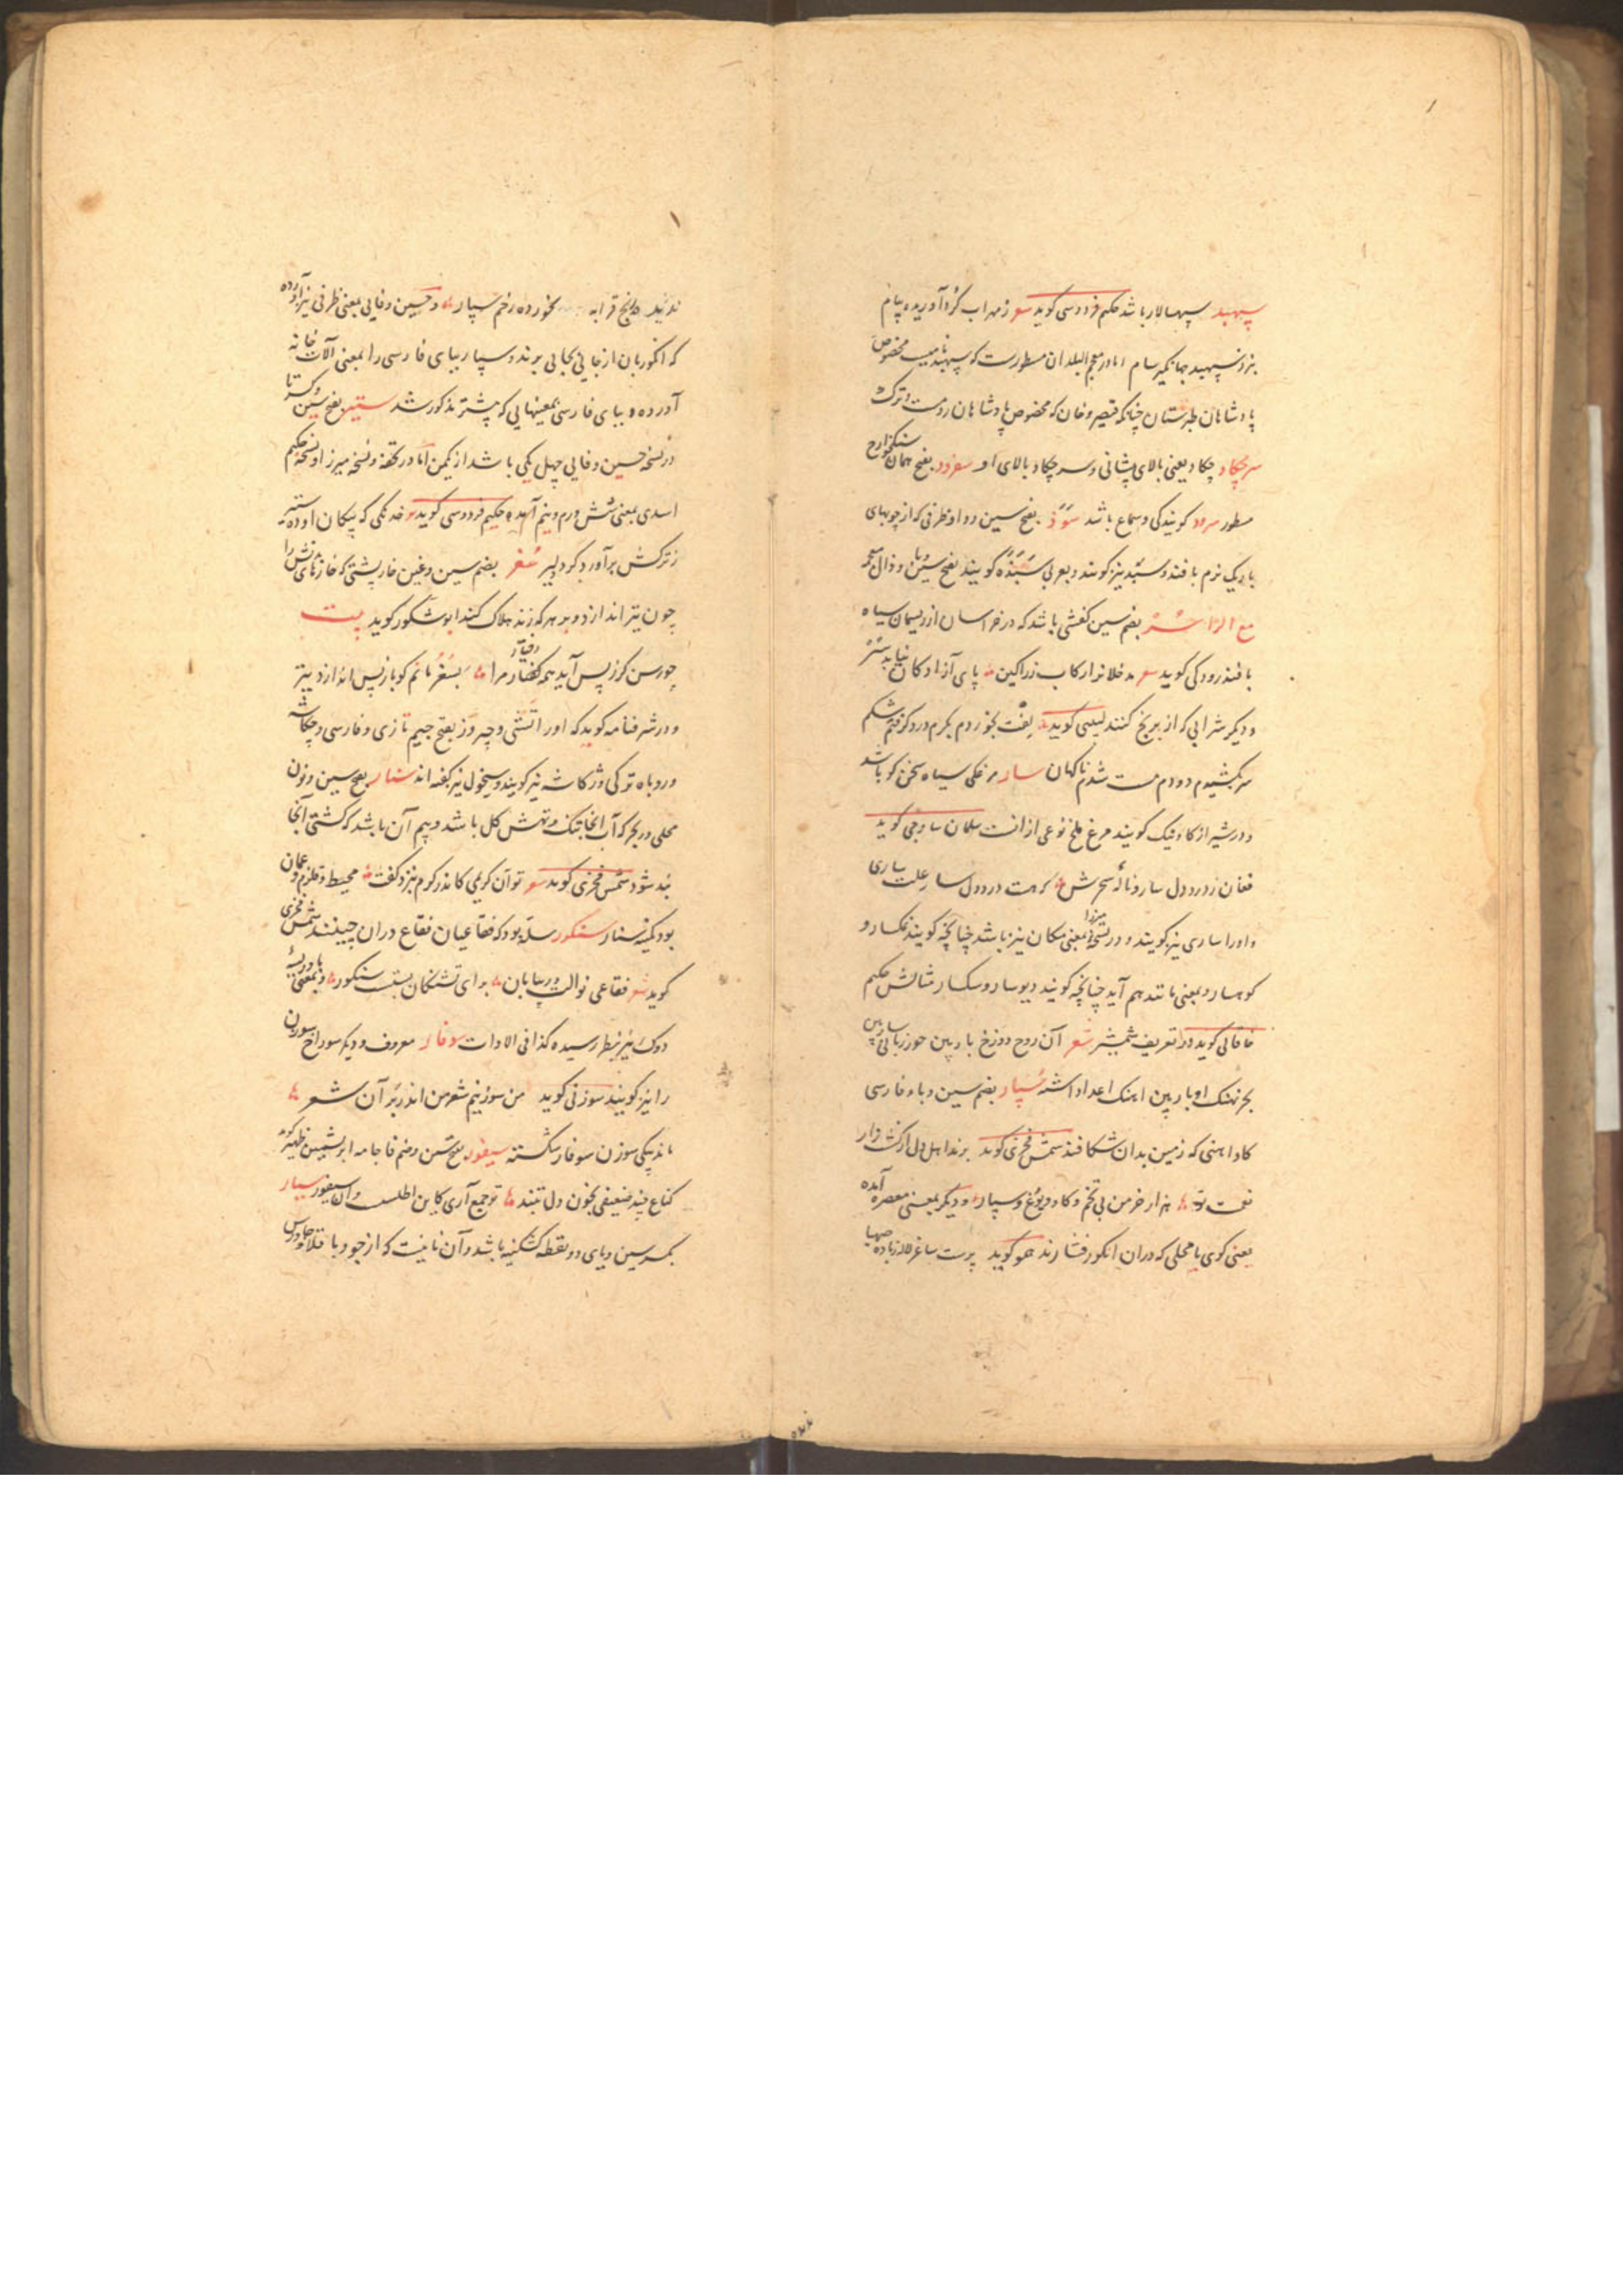 سپهبد سپهسالار باشد حکیم فردوسی گوید شعر ز مهراب گرد آوریده پیام
بنزد سپهبد جهانگیر سام اما در معجم البلدان مسطورست که سپهبد نامیست مخصوص
پادشاهان طبرستان چنانکه قیصر و خان که مخصوص پادشاهان رومست و ترک
سرچکاد چکاد یعنی بالای پیشانی و سرچکاد بالای او سفرود بفتح همان
مسطور سرود گویندگی و سماع باشد بفتح سین و واو ظرفی که از چوبهای
باریک نرم بافند و سبد نیز گویند و بعربی سبذه گویند بفتح سین و با و ذال معجمه
مع الراء سر بضم سین کفشی باشد که در خراسان از ریسمان سیاه
بافند رودکی گوید شعر پای آزادگان نیابد سر
و دیگر شرابی که از برنج کنند لبیبی گوید بخوردم بکرم درد گرفتم شکم
سر بکشیدم دو دم مست شدم ناگهان سار مرغکی سیاه سخن گو باشد
و در شیراز گاونیک گویند مرغ ملخ نوعی از آنست سلمان ساوجی گوید
فغان ز درد دل سار و ناله سحرش که هست در دل سار علت ساری
و او را ساری نیز گویند و در نسخه میرزا بمعنی مکان نیز باشد چنانچه گویند نمکسار و
کوهسار و بمعنی مانند هم آید چنانچه گویند دیوسار و سگسار مثالش حکیم
خاقانی گوید در تعریف شمشیر شعر آن روح دوزخ بار بین حور زبانی سار بین
بحر نهنگ اوبار بین آهنگ اعدا داشته سپار بضم سین و باء فارسی
گاو آهنی که زمین بدان شکافند شمس فخری گوید برند اهل دل از کشتزار
نعمت تو هزار خرمن بی تخم و گاو و یوغ و سپار و دیگر بمعنی معصره آمده
یعنی گوی یا محلی که در آن انگور فشارند همو گوید پرست ساغر لاله ز باده صهبا
ندید رنج قرابه نخورده زخم سپار و حسین وفایی بمعنی ظرفی نیز آورده
که انگور بآن از جائی بجائی برند و سپار ببای فارسی را بمعنی آلات خانه
آورده و ببای فارسی بمعنیهایی که پیشتر مذکور شد ستیر بفتح سین و کسر تا
در نسخه حسین وفایی چهل یکی باشد از یک من اما در تحفه و نسخه میرزا و نسخه حکیم
اسدی بمعنی شش درم و نیم آمده حکیم فردوسی گوید خدنگی که پیکان او ده ستیر
ز ترکش برآورد گرد دلیر سغر بضم سین و غین خارپشتی که خارهای تنش را
چون تیر اندازد و بر هر که زند هلاک کند ابو شکور گوید بیت
چو رسن گر ز پس آید همه گفتار مرا بسغر مانم کو باز پس اندازد تیر
و در شرفنامه گوید که او را تشی و چروز بفتح جیم تازی و فارسی و چکاشه
و روباه ترکی و ژکاشه نیز گویند و سیخول نیز گفته اند سنار بفتح سین و نون
محلی در بحر که آب آنجا تنک و تهش گل باشد و بیم آن باشد که کشتی آنجا
بند شود شمس فخری گوید شعر تو آن کریمی کاندر کرم بنزد کفت محیط و قلزم و عمان
بود کمینه سنار سنکور سله بود که فقاعیان فقاع در آن چینند شمس فخری
گوید شعر فقاعی نوالت در بیابان برای تشنگان بستست سنکور و بمعنی بادریسه
دوک نیز بنظر رسیده کذا فی الادات سوفار معروف و دیگر سوراخ سوزن
را نیز گویند سوزنی گوید من سوزنیم شعر من اندر بر آن شعر
ماند بیکی سوزن سوفار شکسته سیفور بفتح سین و ضم فا جامه ابریشمین ظهیر گوید
کناغ چند ضعیفی بخون دل بتند تو جمع آری کاین اطلس و آن سیفور سیار
بکسر سین و یای دو نقطه کشکینه باشد و آن نانیست که از جو و باقلا و جاورس